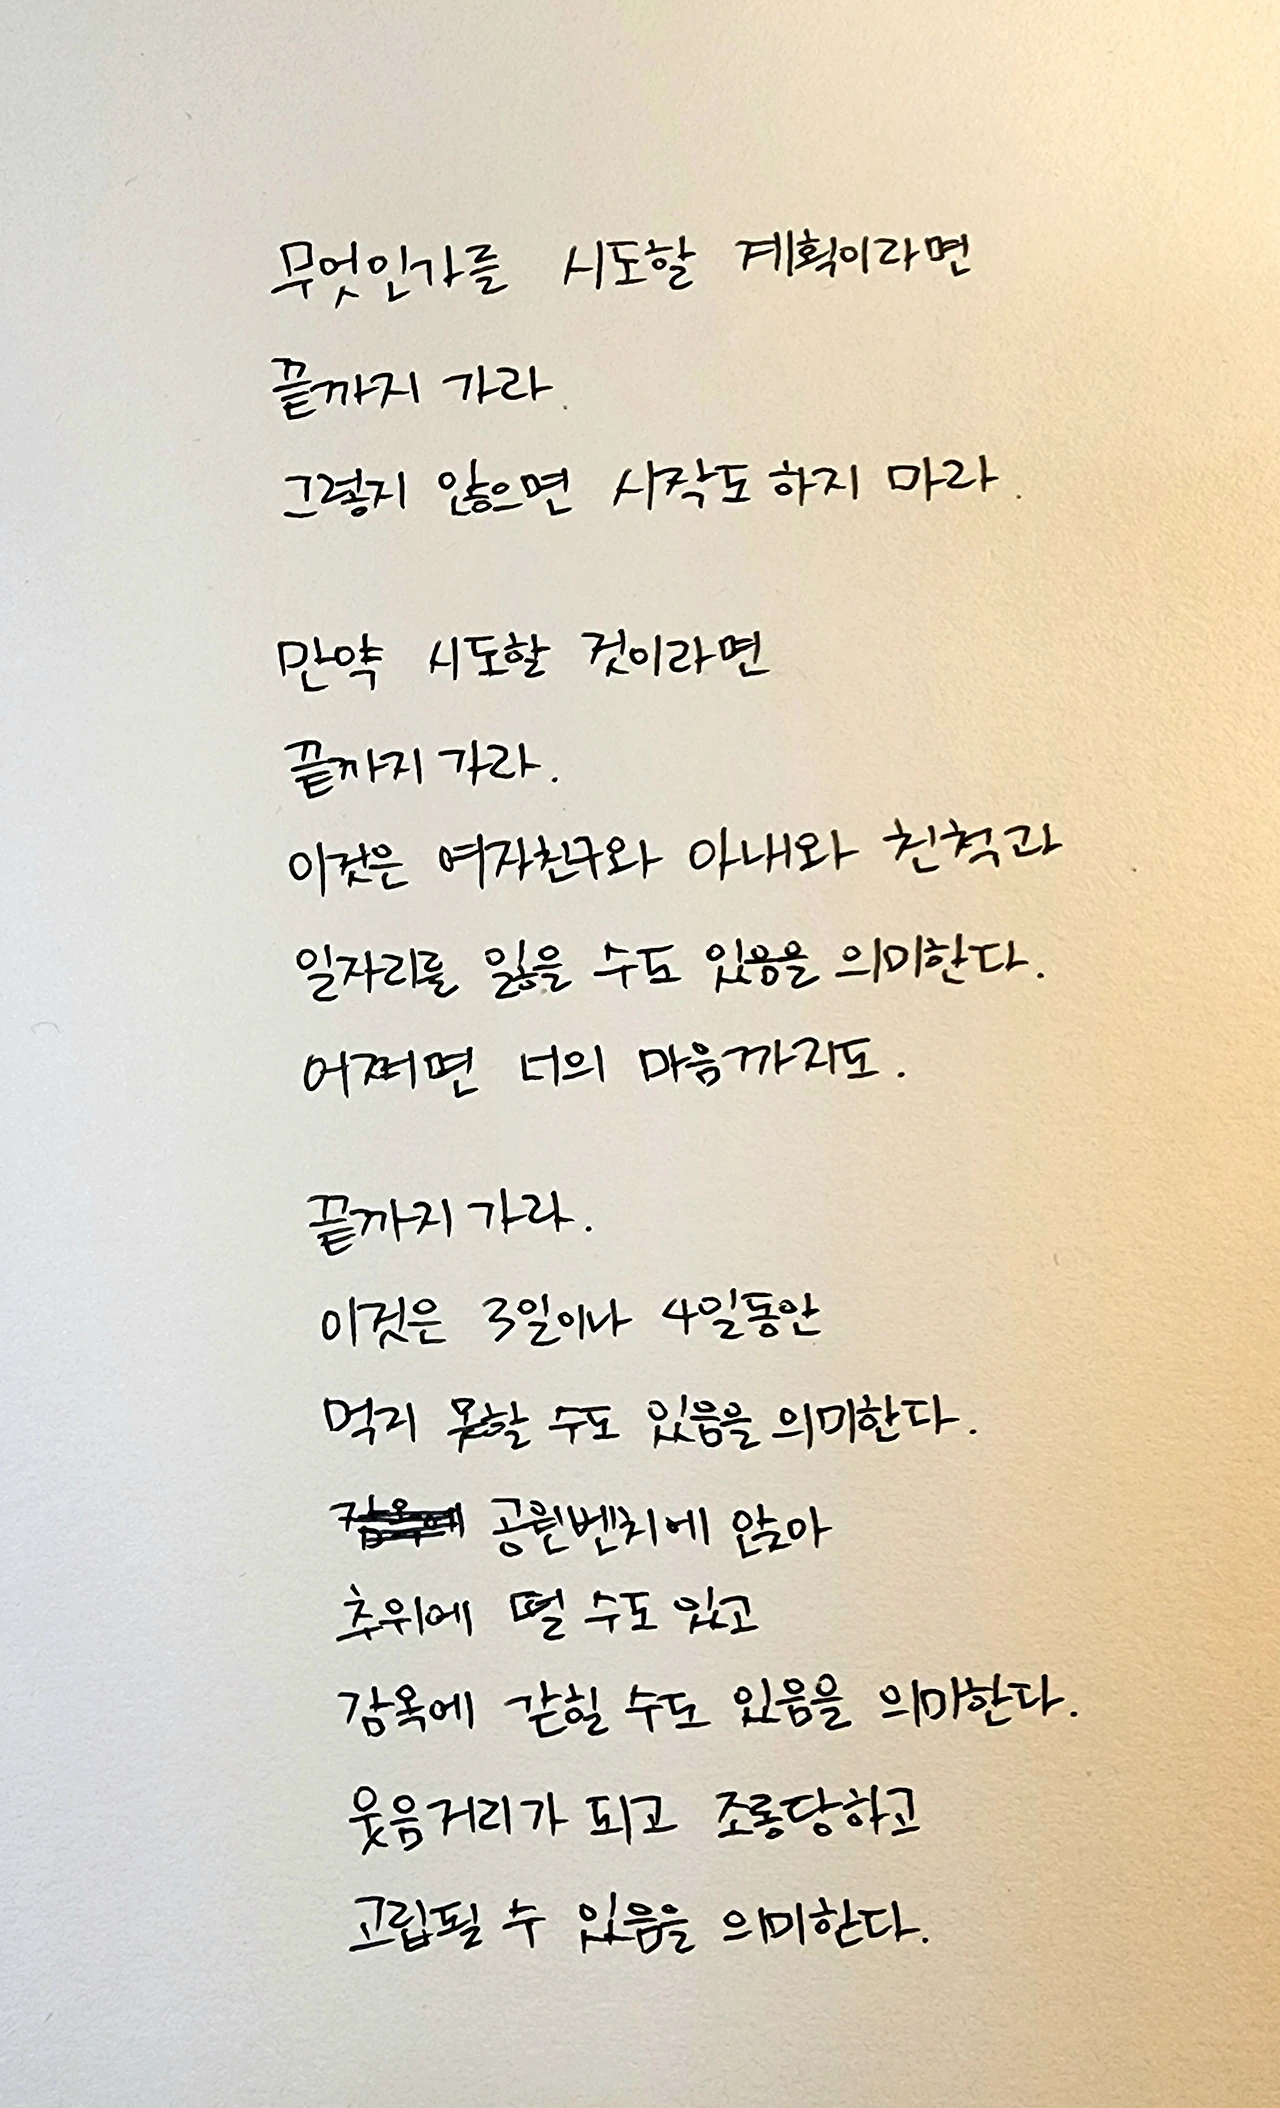 무엇인가를 시도할 계획이라면
끝까지 가라.
그렇지 않으면 시작도 하지 마라.
만약 시도할 것이라면
끝까지 가라.
이것은 여자친구와 아내와 친척과
일자리를 잃을 수도 있음을 의미한다.
어쩌면 너의 마음까지도.
끝까지 가라.
이것은 3일이나 4일동안
먹지 못할 수도 있음을 의미한다.
공원벤치에 앉아
추위에 떨 수도 있고
감옥에 갇힐 수도 있음을 의미한다.
웃음거리가 되고 조롱당하고
고립될 수 있음을 의미한다.